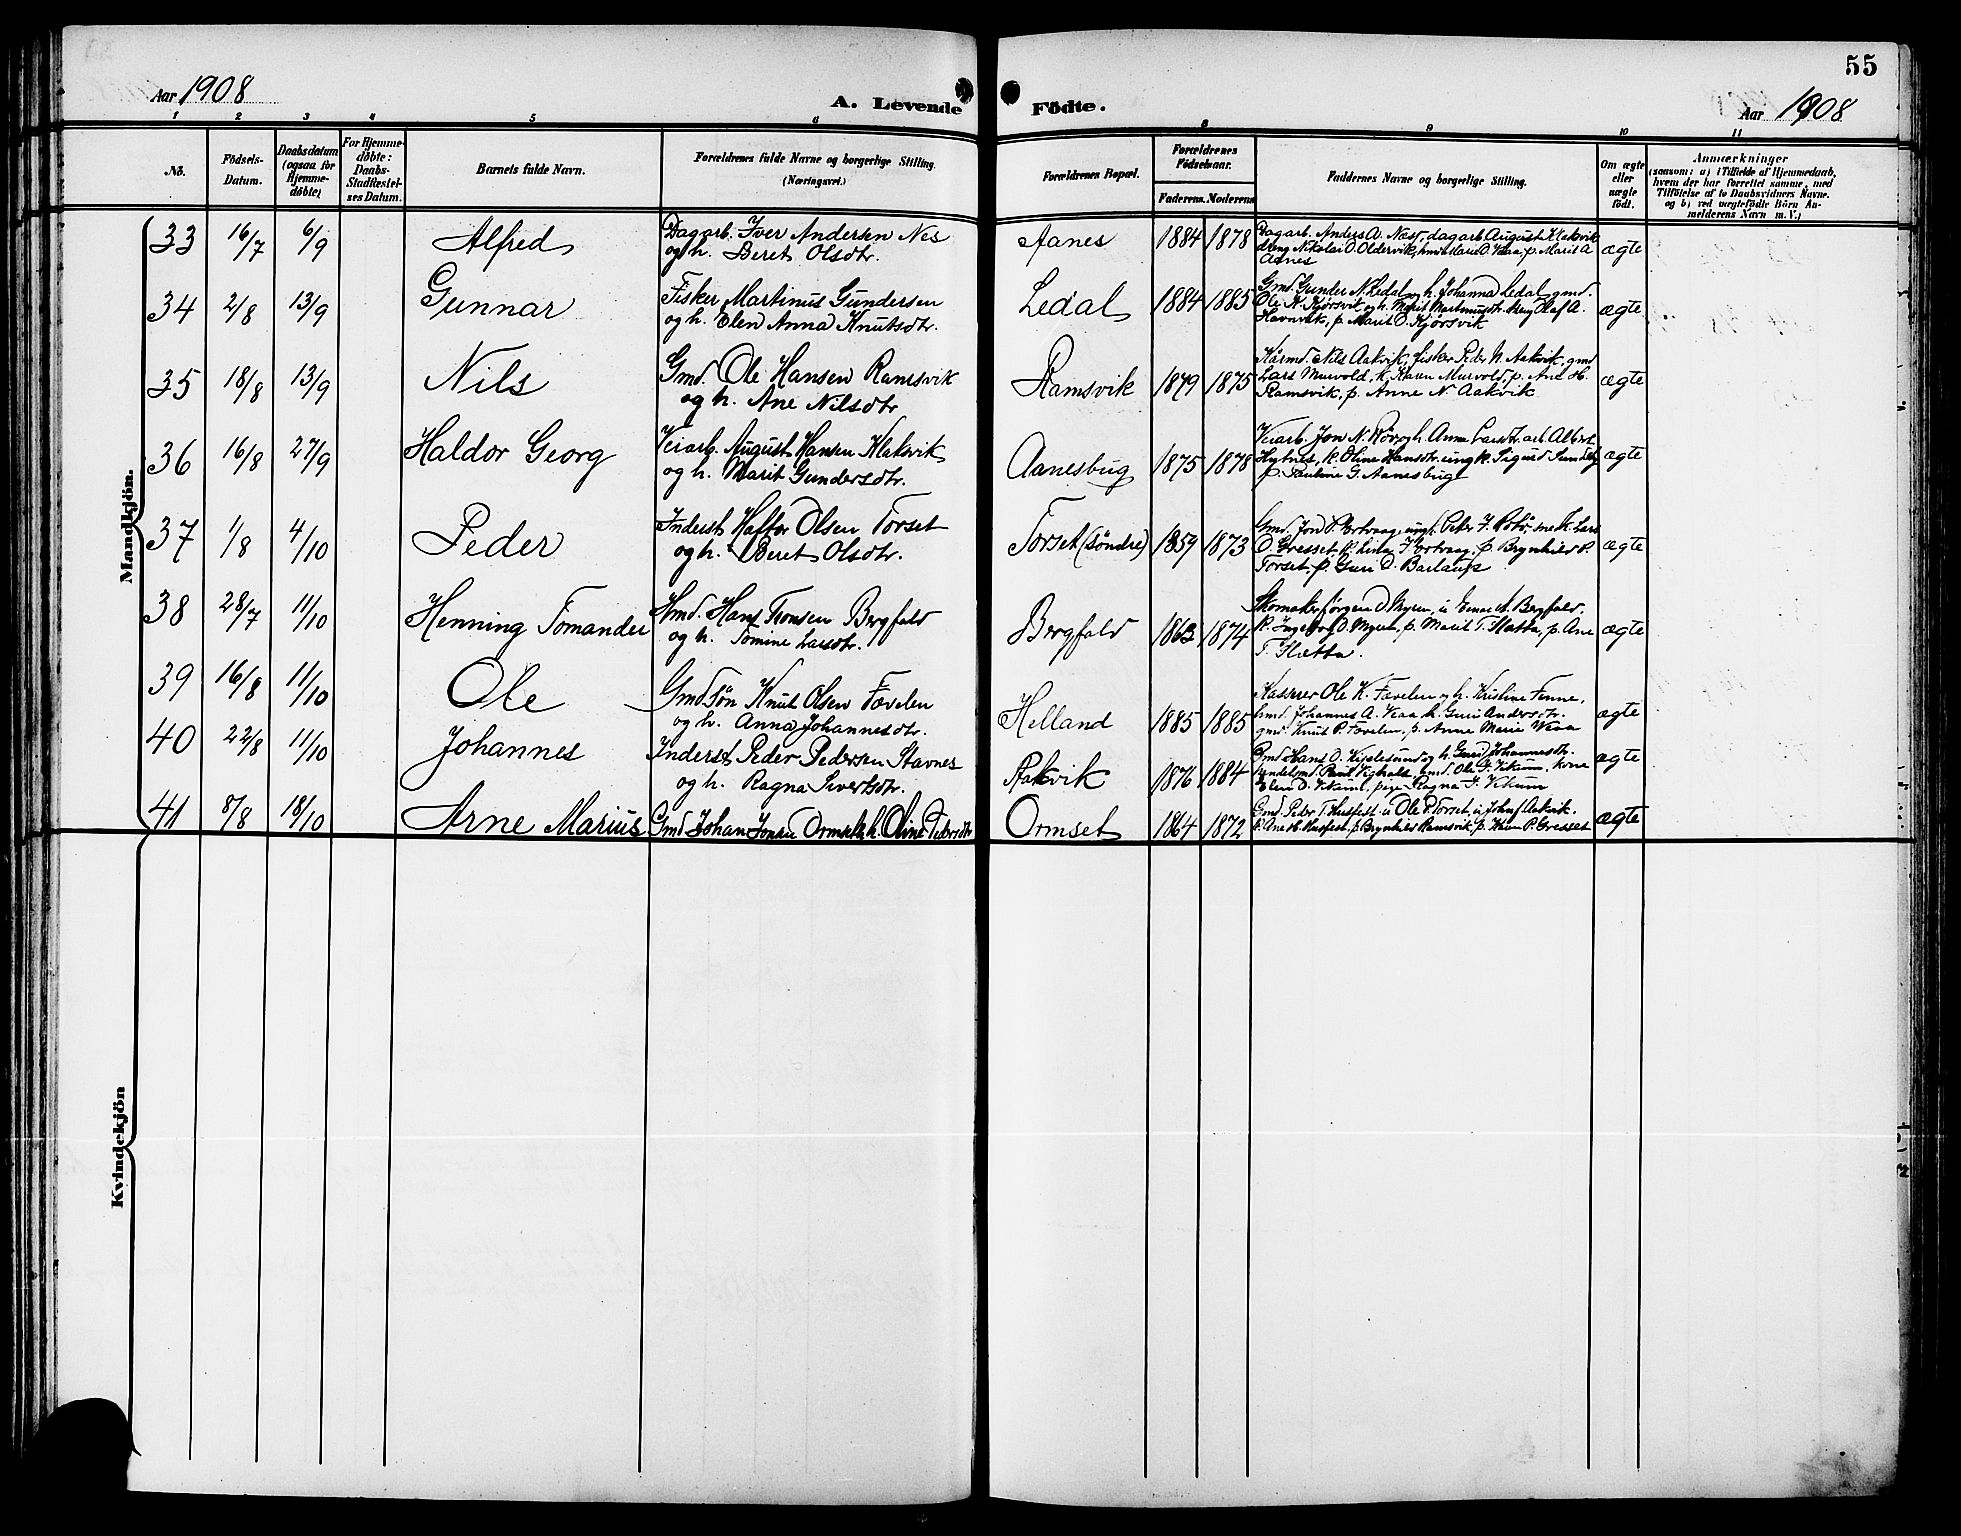 55
Aar 1908
A. Levende
Födte.
Aar 1908
1 2 3 4 5 6 8 9 10 11
No.
Födsels-
Datum.
Daabsdatum
(ogsaa for
Hjemme-
döbte)
For Hjemme-
döbte:
Daabs-
Stadfæstel-
ses Datum.
Barnets fulde Navn.
Forældrenes fulde Navne og borgerlige Stilling.
(Næringsvei.)
Forældrenes Bopæl.
Forældrenes
Födselsaar.
Faderens. Moderens
Faddernes Navne og borgerlige Stilling.
Om ægte
eller
uægte
født.
Anmærkninger
(saasom: a) i Tilfælde af Hjemmedaab,
hvem der har forrettet samme, med
Tilföielse af to Daabsvidners Navne.
og b) ved uægtefödte Börn An-
melderens Navn m. V.)
Mandkjön.
33 16/7 6/9 Alfred
Dagarb. Iver Andersen Nes
og h. Beret Olsdtr.
Aanes 1884 1878
Dagarb. Anders A. Næss, dagarb August Klaksvik
dreng Nikolai O. Oldervik, Marie O. p. Marit A
Aanes
ægte
34 2/8 13/9 Gunnar
Fisker Martinus Gundersen
og h. Elen Anna Knutsdtr.
Ledal 1884 1885
Gmd. Gunder N. Ledal og h. Johanna Ledal, gmd.
Ole K. Kjörsvik og h. Marit Olaf A.
Havnvik, p. Marit O. Kjörsvik
ægte
35 18/8 13/9 Nils
Gmd. Ole Hansen Ramsvik
og h. Ane Nilsdtr
Ramsvik 1879 1875
Kårmd. Nils Aakvik, fisker Peder N. Aakvik, gmd
Lars Murvold, k. Karen Murvold, p. Ane H.
Ramsvik, p. Anne N. Aakvik
ægte
36 16/8 27/9 Haldor Georg
Veiarb. August Hansen Klaksvik
og h. Marit Gundersdtr.
Aanesbug 1875 1878
Veiarb. Jon N. og h. Anne Larsdtr. arb Albert
Hytnes, k. Oline Hansdtr. ungk. Sigurd
p. Pauline G. Aanesbug
ægte
37 1/8 4/10 Peder
Inderst Haftor Olsen Torset
og h. Beret Olsdtr.
Torset (söndre) 1859 1873
Gmd. Jon P. Vortvaag, ungk. Peter J. Lars
O. Gresset k. Lina J. Vortvaag, p. Brynhild P.
Torset, p. Guri O. Barlaup
ægte
38 28/7 11/10 Henning Tomander
Gmd. Hans Tronsen Bergfald
og h. Tomine Larsdtr.
Bergfald 1863 1874
Skomaker Jörgen O. Myren, u. Einar A. Bergfald.
k. Ingeborg O. Myren, p. Marit T. Slætta, p. Ane
T. Slætta.
ægte
39 16/8 11/10 Ole
Gmd. sön Knut Olsen Fævelen
og h. Anna Johannesdtr.
Helland 1885 1885
Kasserer Ole K. Fævelen og h. Kristine Finne,
Gmd. Johannes A. Veaa h. Guri Andersdtr.
gmd Knut P. Fævelen, p. Anne Marie Veaa
ægte
40 22/8 11/10 Johannes
Inderst Peder Pedersen Stavnes
og h. Ragna Sivertsdtr.
Aakvik 1876 1884
Gmd Hans O. og h. Guri Johannesdtr.
gmd. Ole J. Vikum, kone
Elen O. Vikum, pige Ragna J. Vikum
ægte
41 8/8 18/10 Arne Marius
Gmd Johan Jonsen Ormset h. Oline Pedersdtr
Ormset 1864 1872
Gmd. Peter T. Husfest u Ole P. Torset, u. Johs Aakvik.
k. Ane H. Husfest, p. Brynhild Ramsvik, p. Karen P. Gresset
ægte
Kvindekjön